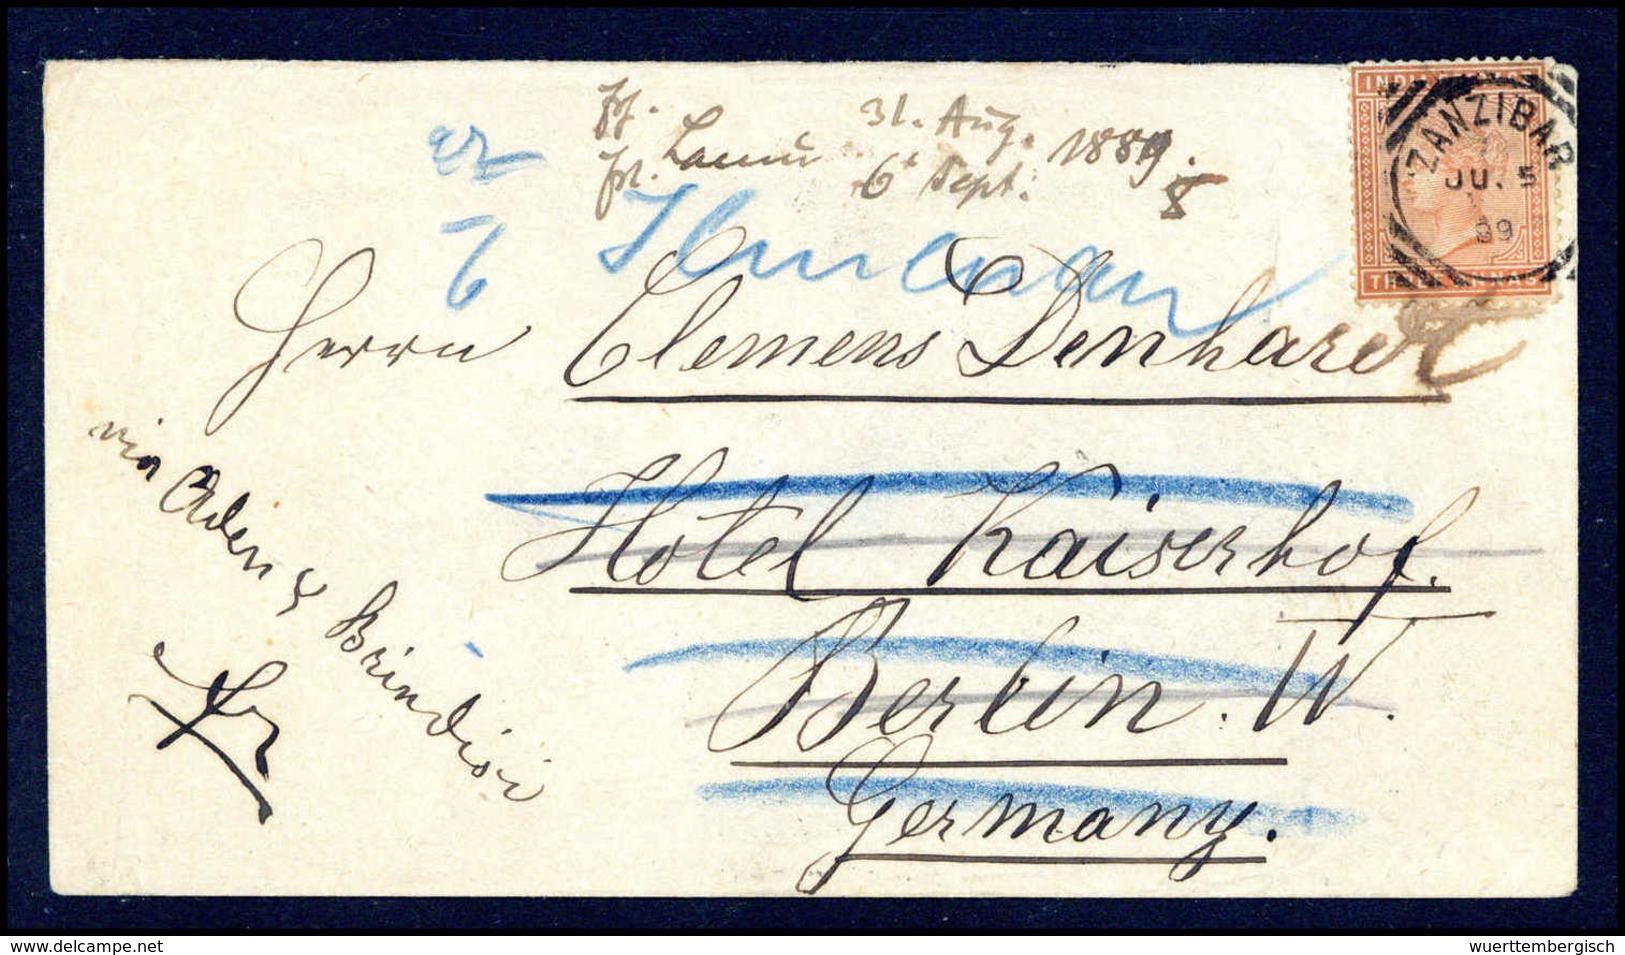 31. Aug.
Lamu 1889.
6 Sept.
8
INDIA
ZANZIBAR
JU. 5
89
Herrn Clemens Denhardt
Hotel Kaiserhof.
Berlin. W.
Germany.
via Aden & Brindisi
delcampe.net
wuerttembergisch